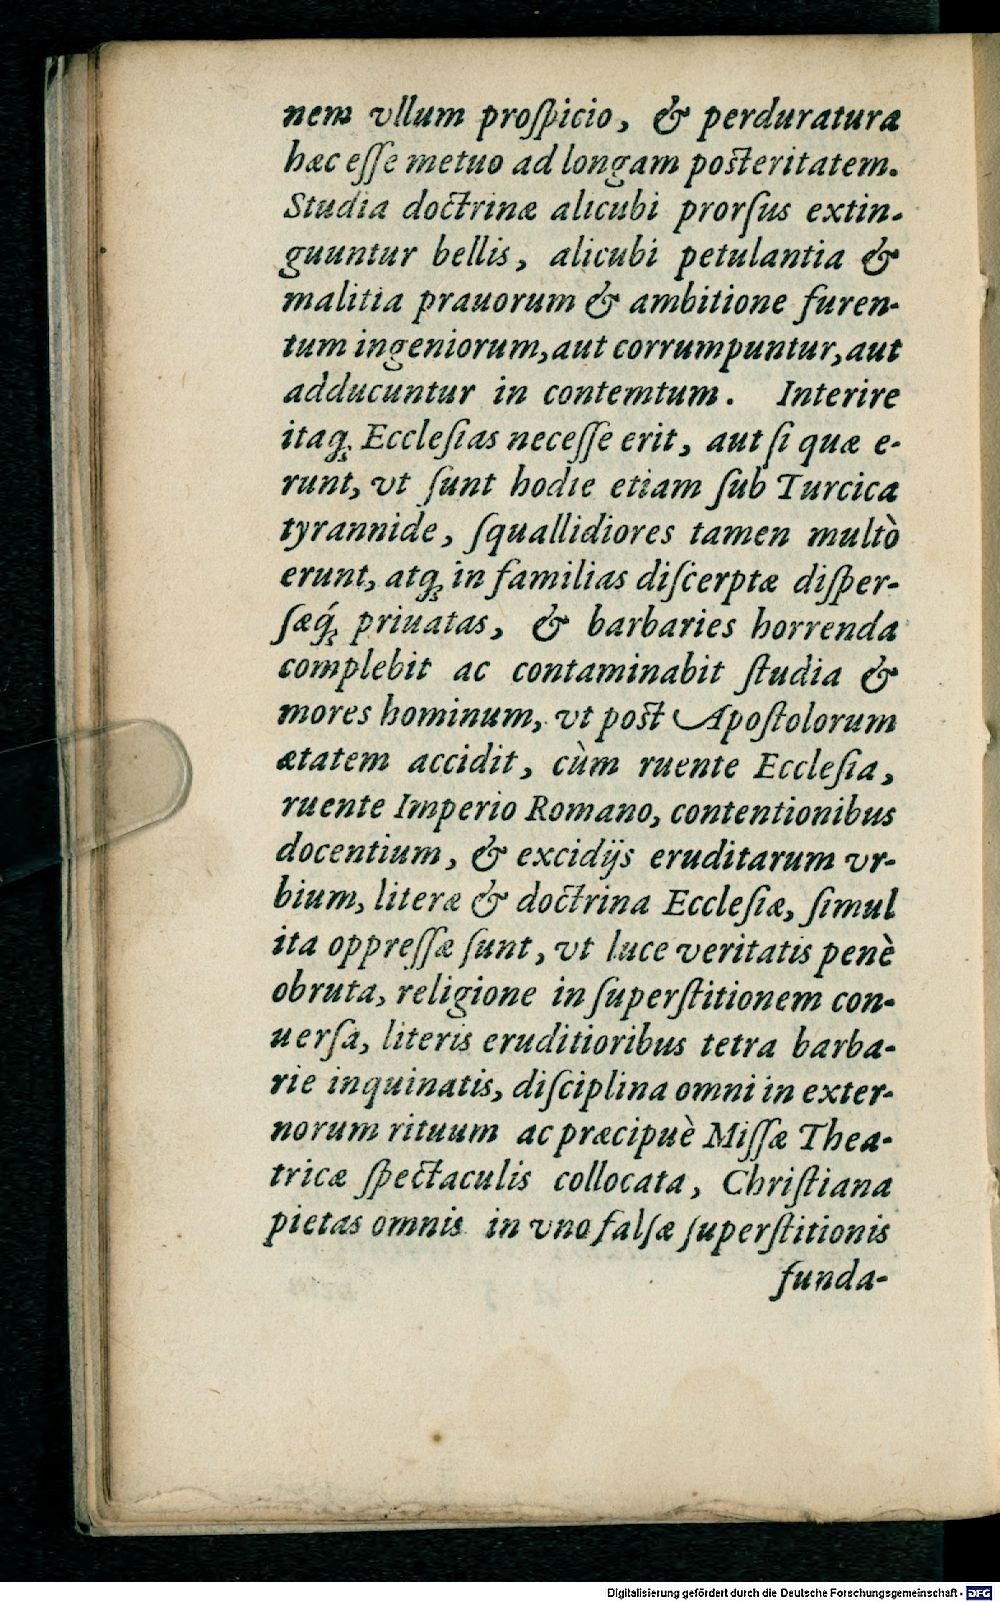 nem vllum proſpicio, & perduratura
hæc eſſe metuo ad longam poſteritatem.
Studia doctrinæ alicubi prorſus extin-
guuntur bellis, alicubi petulantia &
malitia prauorum & ambitione furen-
tum ingeniorum, aut corrumpuntur, aut
adducuntur in contemtum. Interire
itaq; Eccleſias neceſſe erit, aut ſi quæ e-
runt, vt ſunt hodie etiam ſub Turcica
tyrannide, ſquallidiores tamen multò
erunt, atq; in familias diſcerptæ diſper-
ſæq́; priuatas, & barbaries horrenda
complebit ac contaminabit ſtudia &
mores hominum, vt poſt Apoſtolorum
ætatem accidit, cùm ruente Eccleſia,
ruente Imperio Romano, contentionibus
docentium, & excidijs eruditarum vr-
bium, literæ & doctrina Eccleſiæ, ſimul
ita oppreſſæ ſunt, vt luce veritatis penè
obruta, religione in ſuperſtitionem con-
uerſa, literis eruditioribus tetra barba-
rie inquinatis, diſciplina omni in exter-
norum rituum ac præcipuè Miſſæ Thea-
tricæ ſpectaculis collocata, Chriſtiana
pietas omnis in vno falſæ ſuperſtitionis
funda-
Digitalisierung gefördert durch die Deutsche Forschungsgemeinschaft - DFG